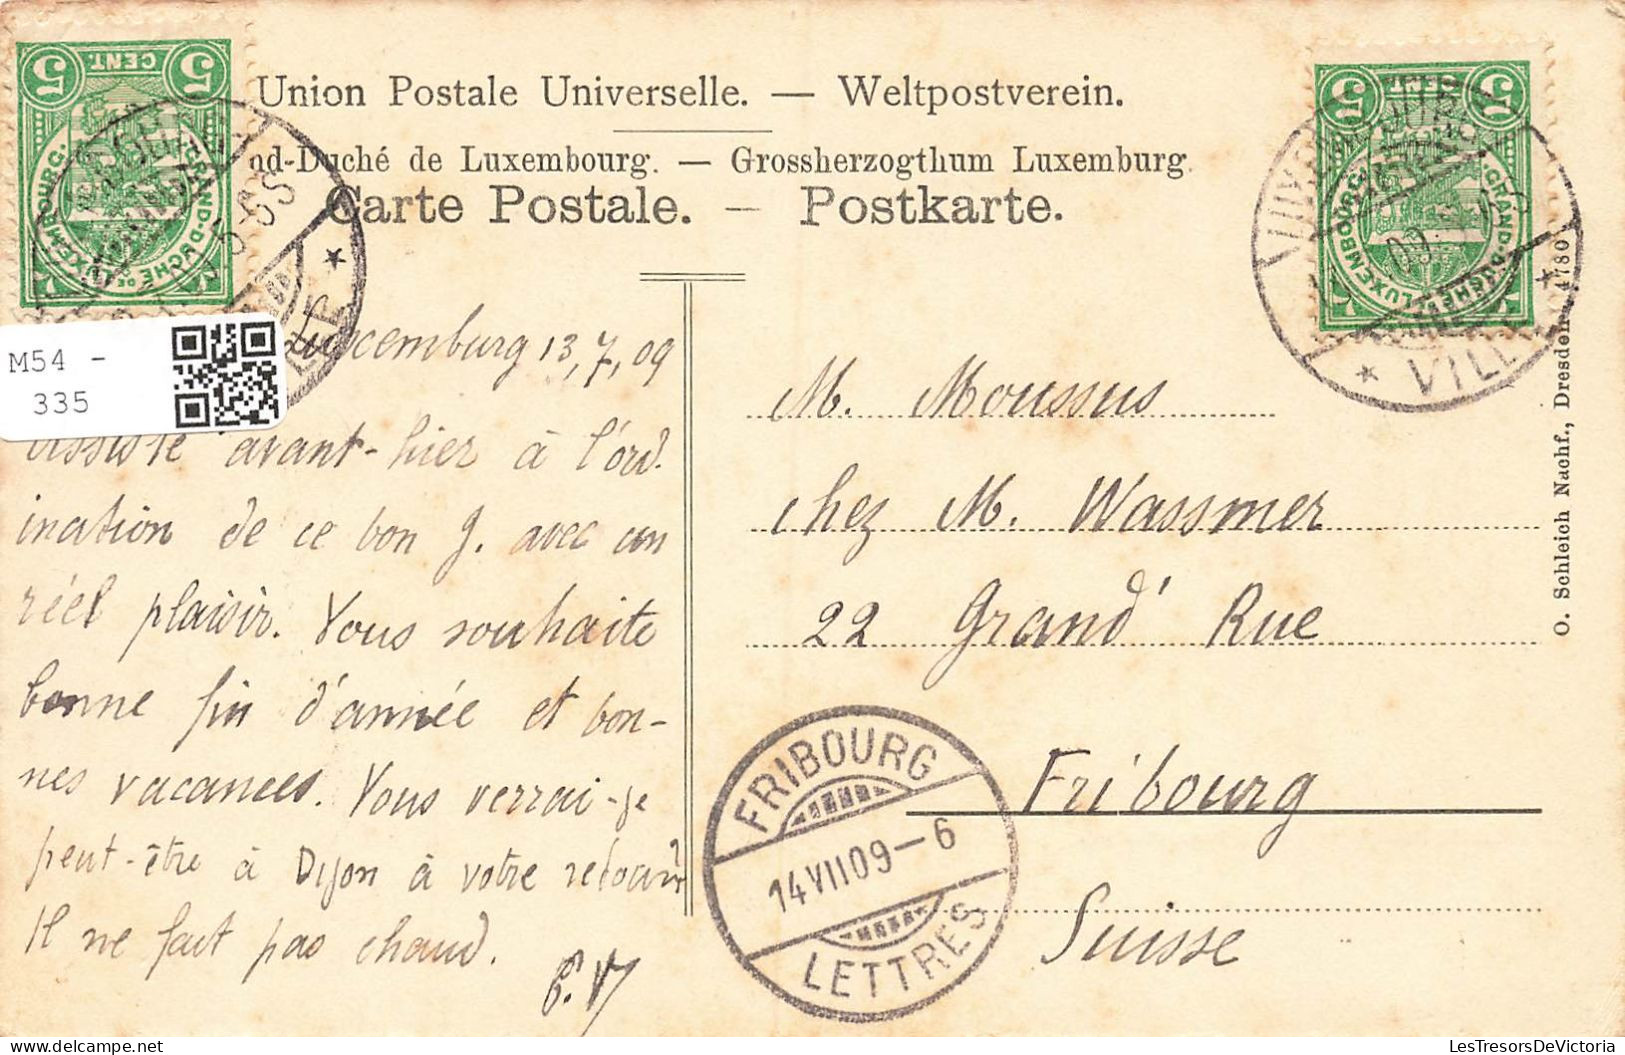 5 CENT. 5
GRAND-DUCHÉ DE LUXEMBOURG.
5 CENT. 5
GRAND-DUCHÉ DE LUXEMBOURG.
Union Postale Universelle. — Weltpostverein.
nd-Duché de Luxembourg. — Grossherzogthum Luxemburg.
Carte Postale. — Postkarte.
VILLE
M54 -
335
Luxemburg 13,7,09
assisté avant-hier à l'ord.
ination de ce bon J. avec un
réel plaisir. Vous souhaite
bonne fin d'année et bon-
nes vacances. Vous verrai-je
peut-être à Dijon à votre retour?
Il ne fait pas chaud.
M. Moussus
chez M. Wassmer
22 Grand' Rue
Fribourg
Suisse
FRIBOURG
14 VII 09 – 6
LETTRES
O. Schleich Nachf., Dresden 4780
LesTresorsDeVictoria